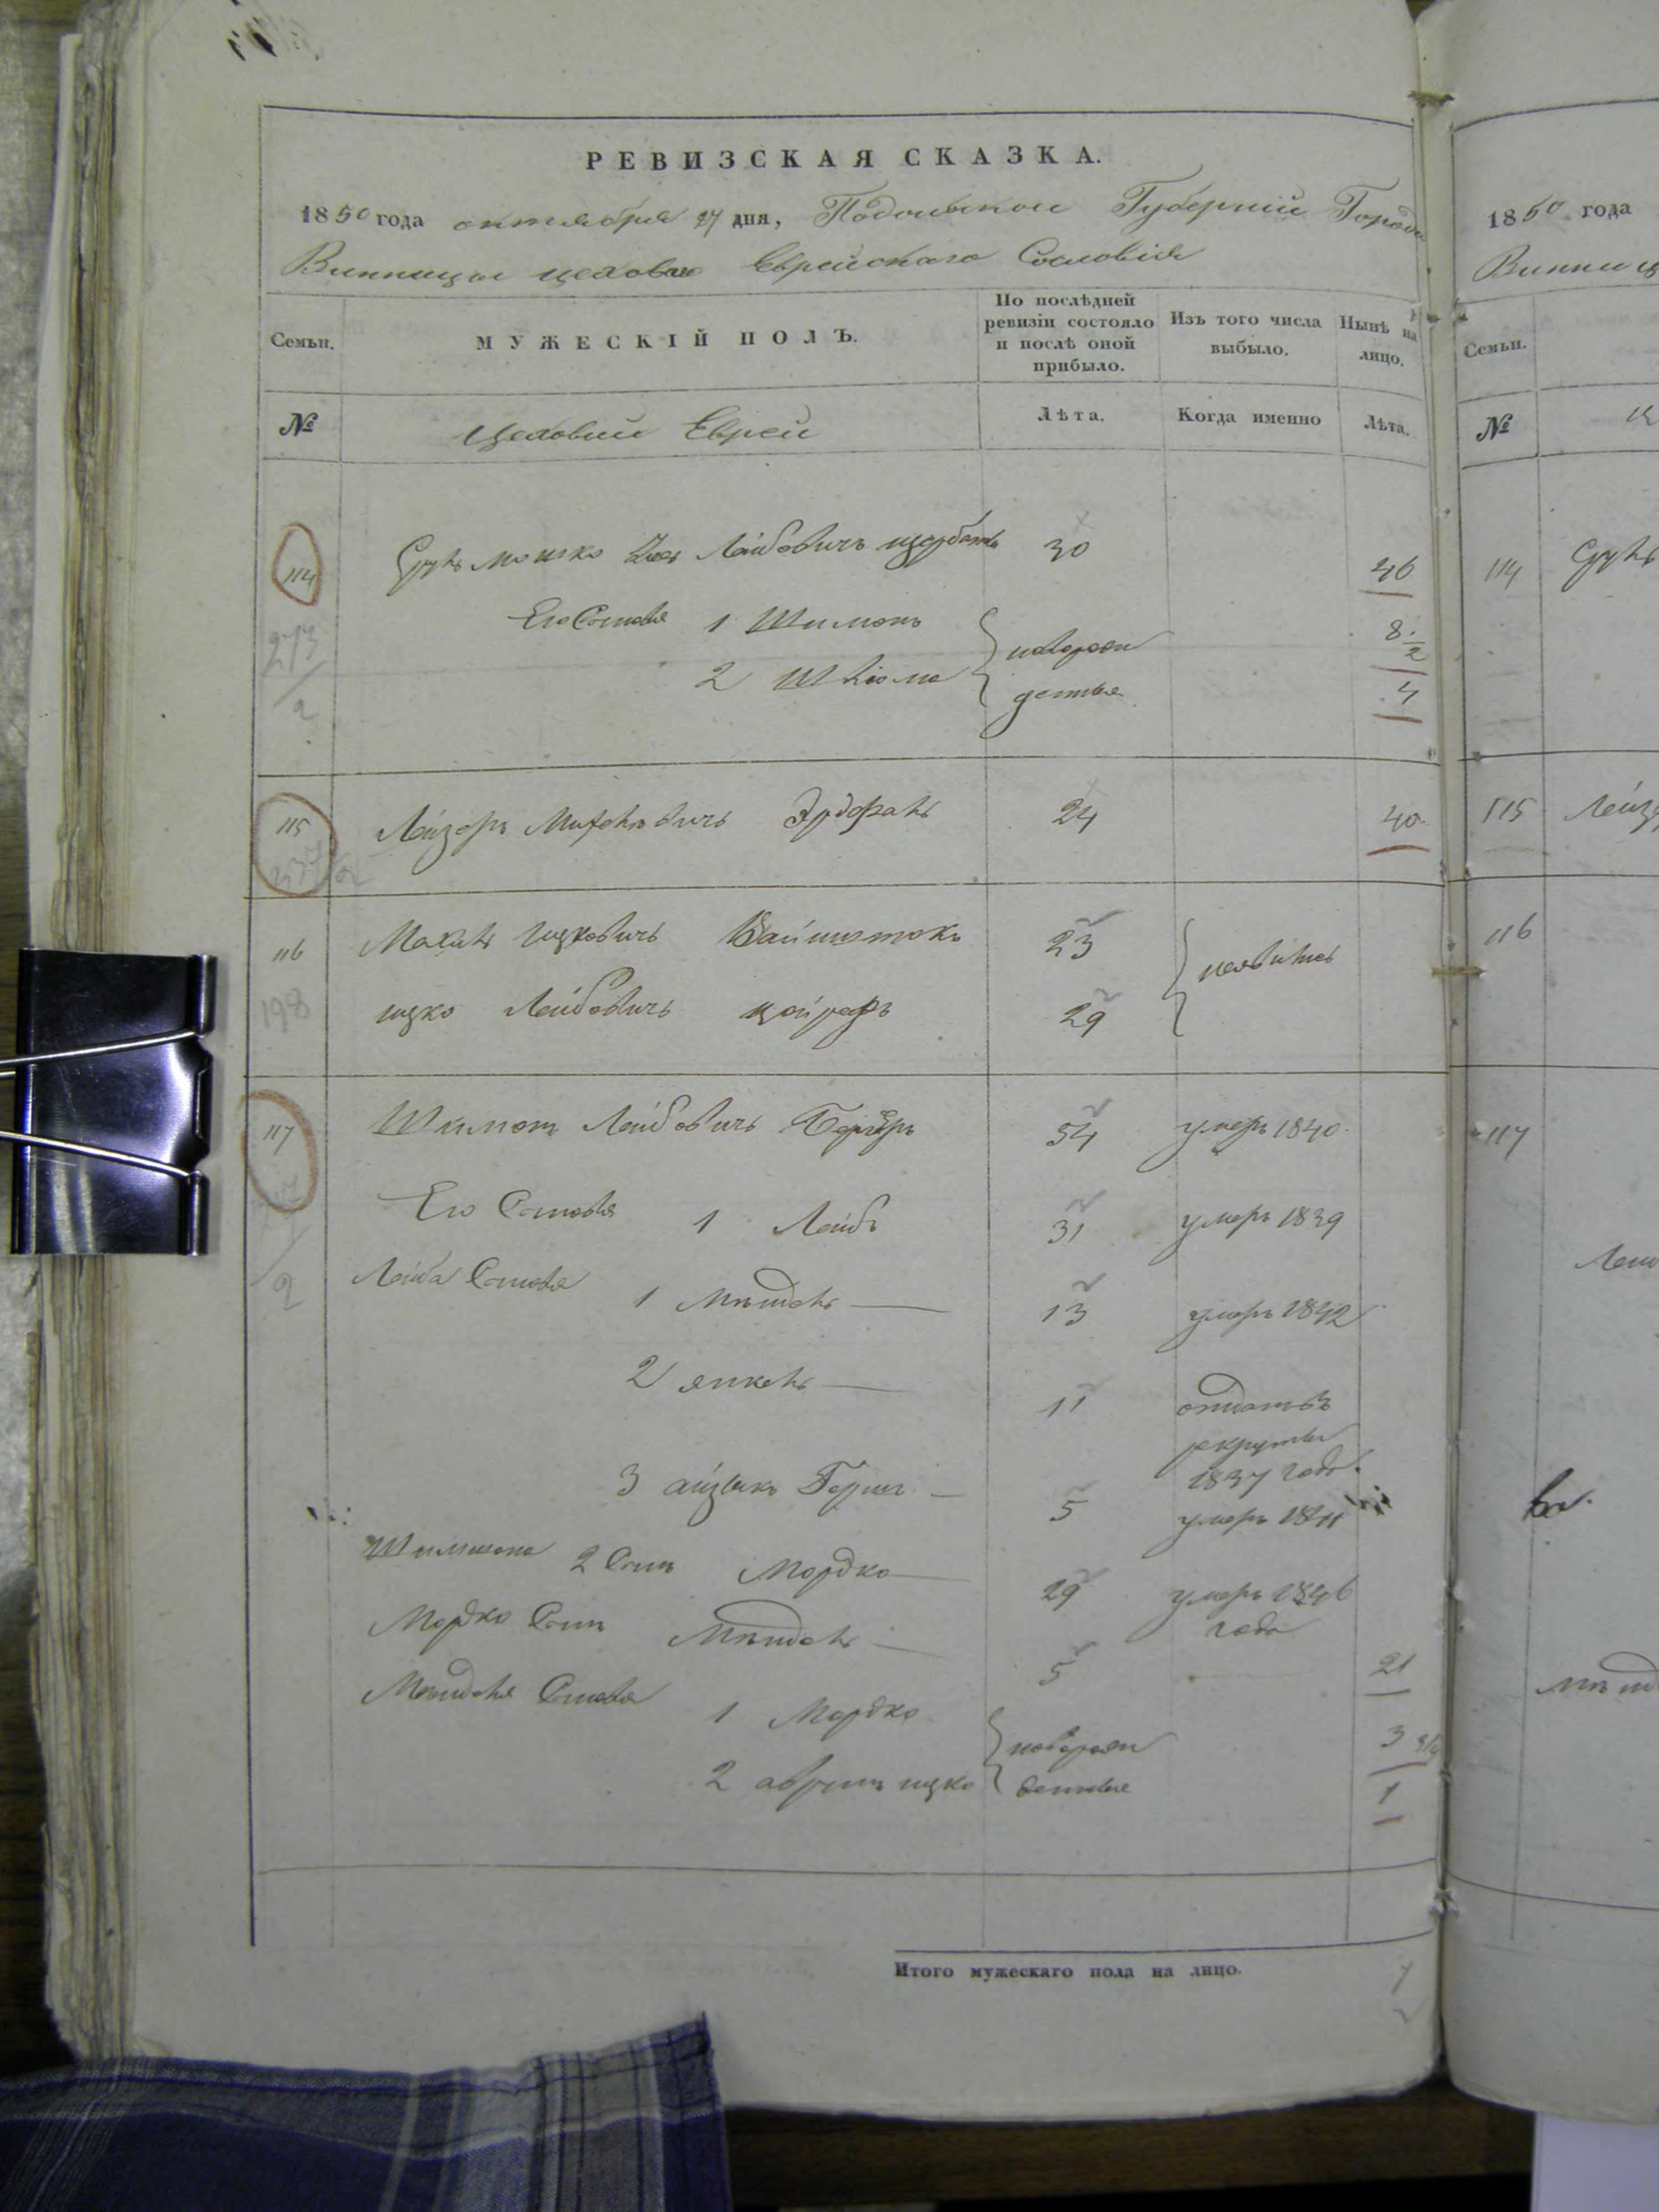 РЕВИЗСКАЯ СКАЗКА.
1850 года октября 27 дня, Подольской Губерніи Города
Винницы цеховых Еврейскаго Сословія
Семьи.
МУЖЕСКІЙ ПОЛЪ.
По послѣдней ревизіи состояло и послѣ оной прибыло.
Изъ того числа выбыло.
Нынѣ на лицо.
№
Цеховыи Евреи
Лѣта.
Когда именно
Лѣта.
114 Сруль Мошко Лейбовичъ 30 46
273/2
Его Сыновья 1 Шимонъ новорож 8
2 Шлiома денные 4
115 Лейзеръ 24 40
116 Ицковичъ Вайншток 23 неявились
198
ицко Лейбовичъ 29
117 Шимон Лейбовичъ 54 умеръ 1840
Его Сыновья 1 Лейбъ 31 умеръ 1839
2
Лейба Сыновья 1 Мендель 13 умеръ 1842
2 янкель 11 отданъ въ
рекруты
1837 года
3 айзыкъ Герш 5 умеръ 1841
2 Сынъ Мордко 29 умеръ 1846
года
Мордко Сынъ Мендель 5 21
Менделя Сыновья 1 Мордко новорожн 3
2 аврум ицко денные 1
Итого мужескаго пола на лицо. 7
1850 года
Винниц
Семьи.
№
114 Сруль
115 Лейз
116
117
Лей